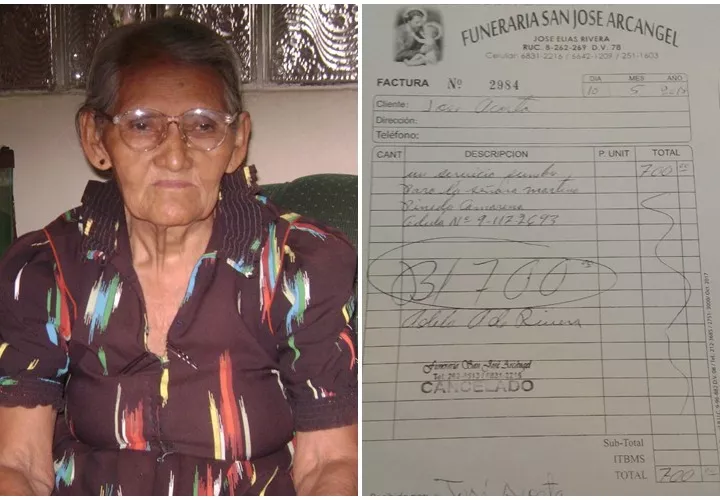 FUNERARIA SAN JOSE ARCANGEL
JOSE ELIAS RIVERA
RUC. 8-262-269 D.V. 78
Celular: 6831-2216 / 6642-1209 / 251-1603
FACTURA Nº 2984
DIA MES AÑO
10 5 2018
Cliente: José Acosta
Dirección:
Teléfono:
CANT DESCRIPCION P. UNIT TOTAL
un servicio funebre 700 00
Para la señora
Pinedo Camarena
Cedula Nº 9-112-2693
B/ 700 00
Rivera
Funeraria San José Arcángel
CANCELADO
Sub-Total
ITBMS
TOTAL 700 00
José Acosta